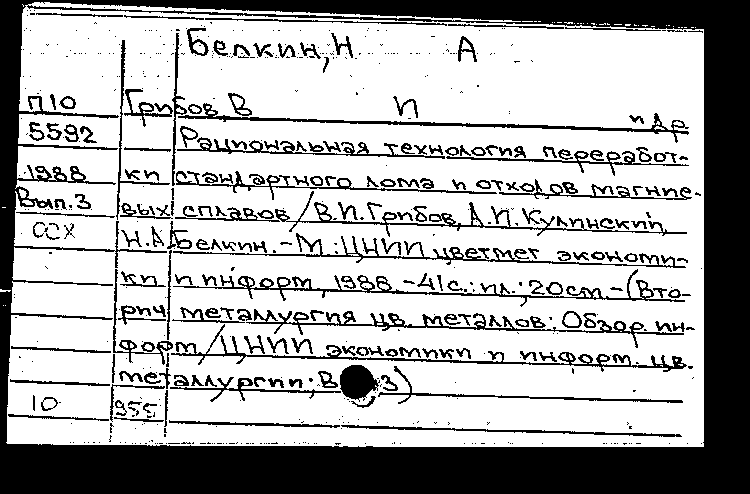 Белкин, Н А
П10 Грибов, В И и др
5592 Рациональная технология переработ-
1988 ки стандартного лома и отходов магние-
Вып.3 вых сплавов / В.И. Грибов, А.И. Кулинский,
ССХ Н.А. Белкин. - М.: ЦНИИ цветмет экономи-
ки и информ, 1988. - 41с.: ил.; 20см. - (Вто-
рич металлургия цв. металлов: Обзор ин-
форм / ЦНИИ экономики и информ. цв.
металлургии; В 3)
10 955